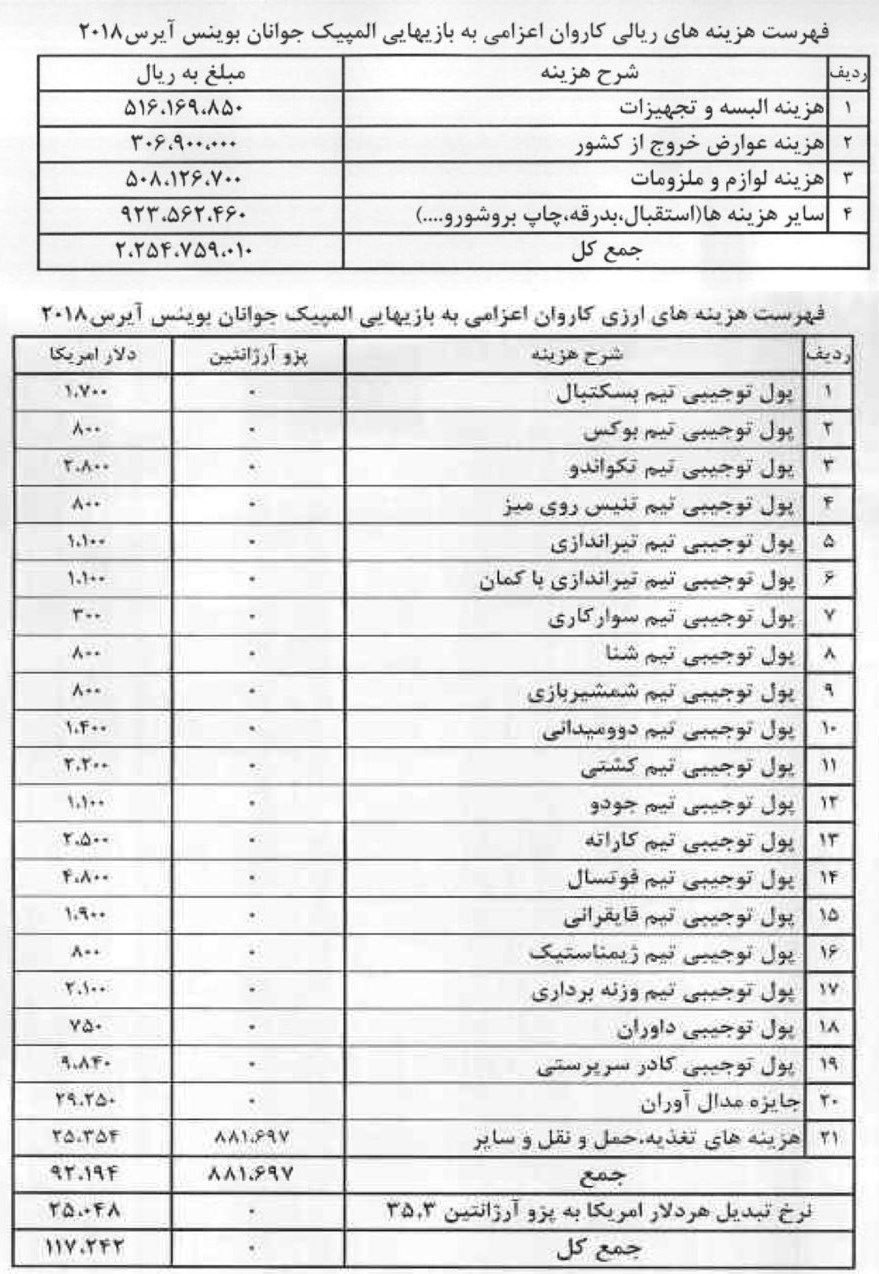 فهرست هزینه های ریالی کاروان اعزامی به بازیهایی المپیک جوانان بوینس آیرس۲۰۱۸
ردیف شرح هزینه مبلغ به ریال
۱ هزینه البسه و تجهیزات ۵۱۶،۱۶۹،۸۵۰
۲ هزینه عوارض خروج از کشور ۳۰۶،۹۰۰،۰۰۰
۳ هزینه لوازم و ملزومات ۵۰۸،۱۲۶،۷۰۰
۴ سایر هزینه ها(استقبال،بدرقه،چاپ بروشورو....) ۹۲۳،۵۶۲،۴۶۰
جمع کل ۲،۲۵۴،۷۵۹،۰۱۰
فهرست هزینه های ارزی کاروان اعزامی به بازیهایی المپیک جوانان بوینس آیرس۲۰۱۸
ردیف شرح هزینه پزو آرژانتین دلار امریکا
۱ پول توجیبی تیم بسکتبال ۰ ۱،۷۰۰
۲ پول توجیبی تیم بوکس ۰ ۸۰۰
۳ پول توجیبی تیم تکواندو ۰ ۲،۸۰۰
۴ پول توجیبی تیم تنیس روی میز ۰ ۸۰۰
۵ پول توجیبی تیم تیراندازی ۰ ۱،۱۰۰
۶ پول توجیبی تیم تیراندازی با کمان ۰ ۱،۱۰۰
۷ پول توجیبی تیم سوارکاری ۰ ۳۰۰
۸ پول توجیبی تیم شنا ۰ ۸۰۰
۹ پول توجیبی تیم شمشیربازی ۰ ۸۰۰
۱۰ پول توجیبی تیم دوومیدانی ۰ ۱،۴۰۰
۱۱ پول توجیبی تیم کشتی ۰ ۲،۲۰۰
۱۲ پول توجیبی تیم جودو ۰ ۱،۱۰۰
۱۳ پول توجیبی تیم کاراته ۰ ۲،۵۰۰
۱۴ پول توجیبی تیم فوتسال ۰ ۴،۸۰۰
۱۵ پول توجیبی تیم قایقرانی ۰ ۱،۹۰۰
۱۶ پول توجیبی تیم ژیمناستیک ۰ ۸۰۰
۱۷ پول توجیبی تیم وزنه برداری ۰ ۲،۱۰۰
۱۸ پول توجیبی داوران ۰ ۷۵۰
۱۹ پول توجیبی کادر سرپرستی ۰ ۹،۸۴۰
۲۰ جایزه مدال آوران ۰ ۲۹،۲۵۰
۲۱ هزینه های تغذیه،حمل و نقل و سایر ۸۸۱،۶۹۷ ۲۵،۳۵۴
جمع ۸۸۱،۶۹۷ ۹۲،۱۹۴
نرخ تبدیل هردلار امریکا به پزو آرژانتین ۳۵,۳ ۰ ۲۵،۰۴۸
جمع کل ۰ ۱۱۷،۲۴۲